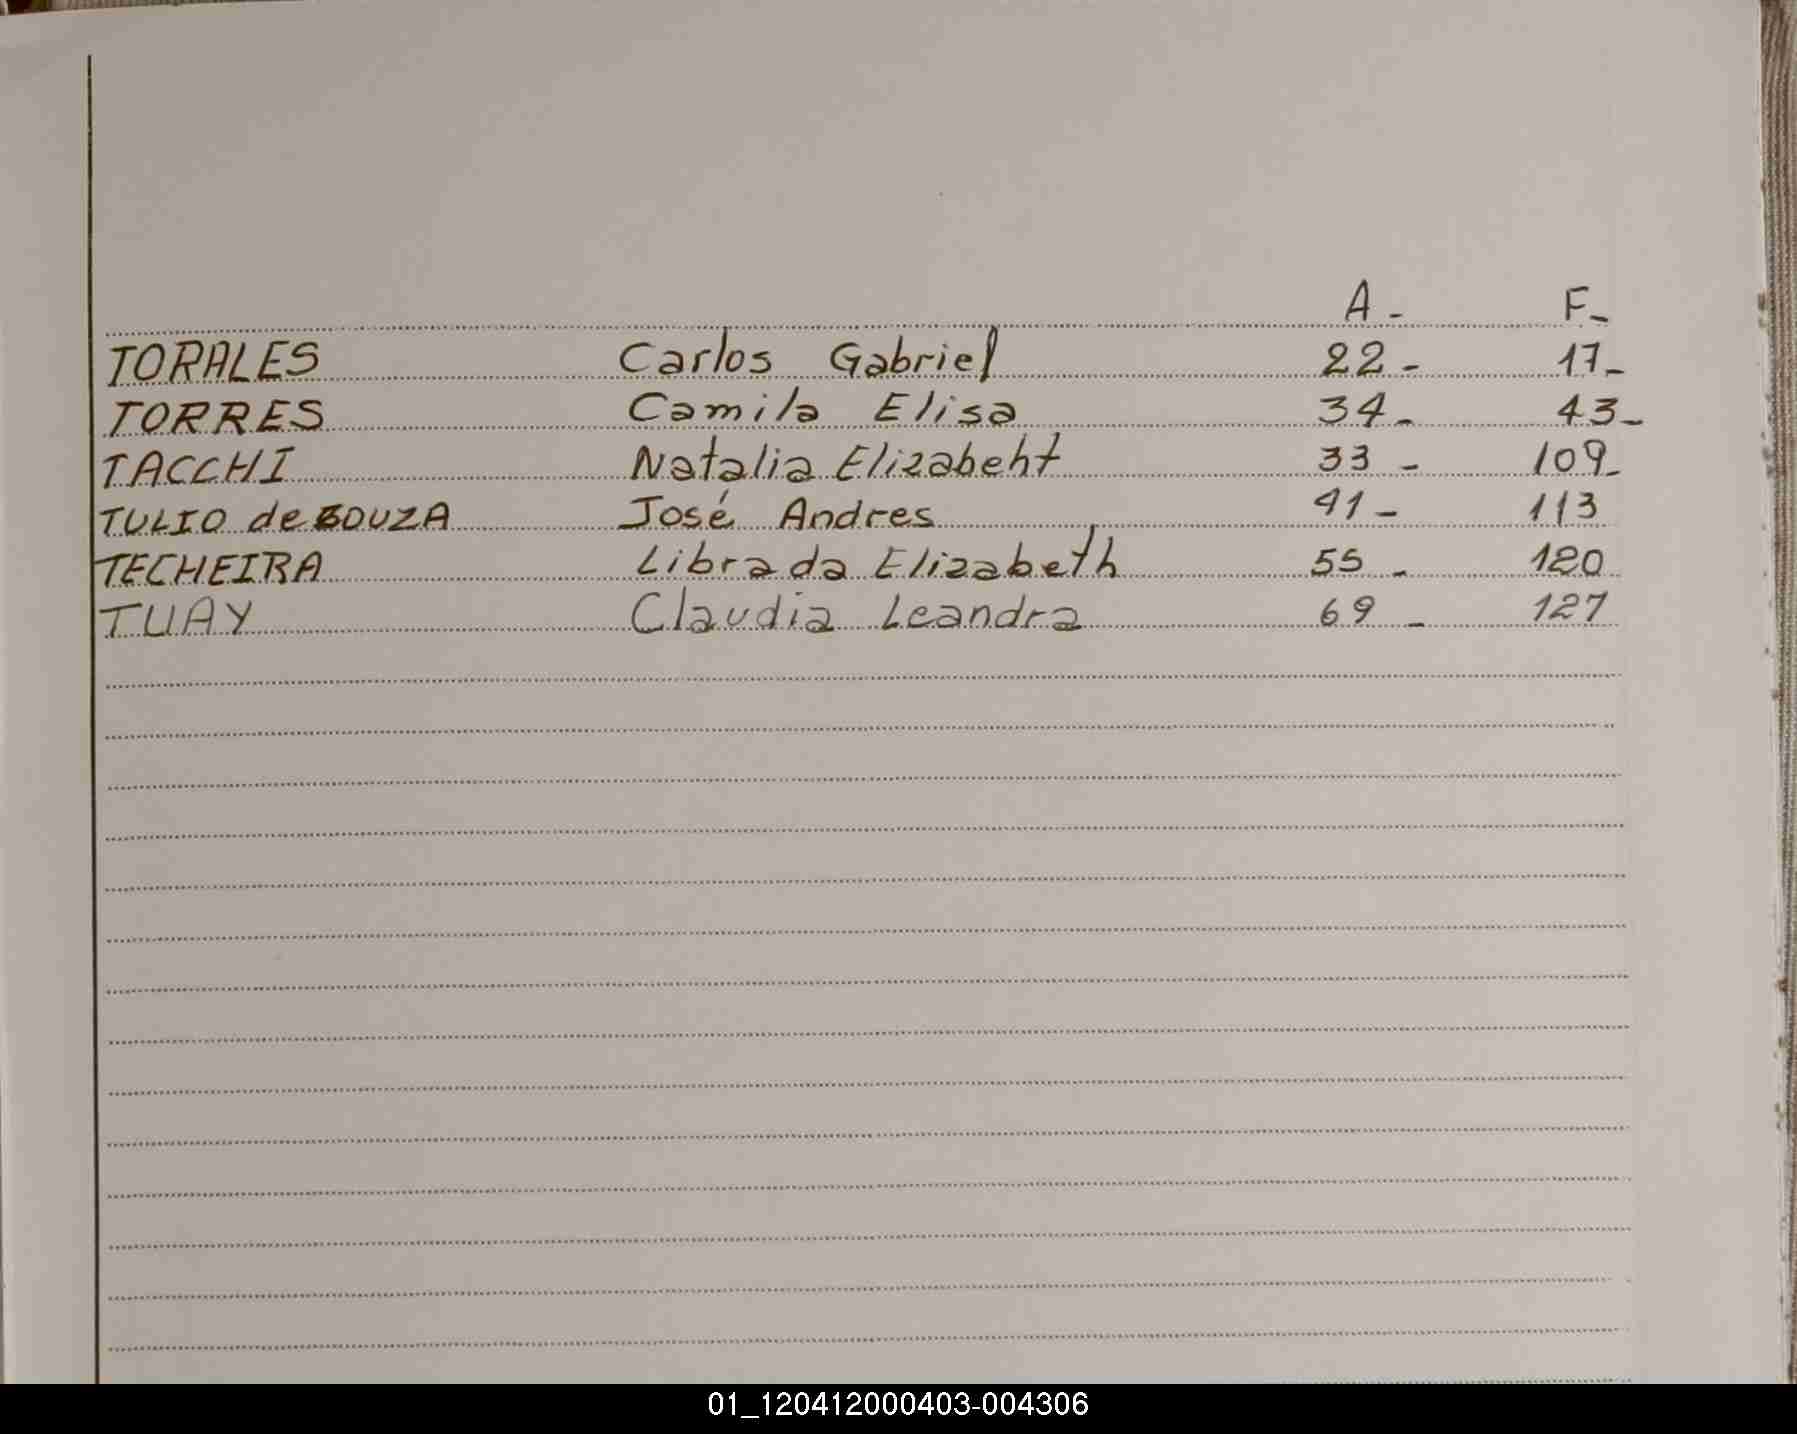 A - F_
TORALES Carlos Gabriel 22 - 17_
TORRES Camila Elisa 34 - 43_
TACCHI Natalia Elizabeht 33 - 109_
TULIO de SOUZA José Andres 41 - 113
TECHEIRA Librada Elizabeth 55 - 120
TUAY Claudia Leandra 69 - 127
01_120412000403-004306